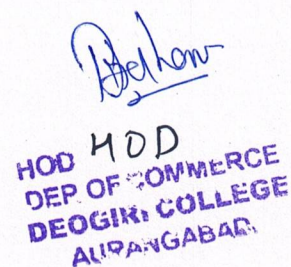 HOD
HOD
DEP OF COMMERCE
DEOGIRI COLLEGE
AURANGABAD.